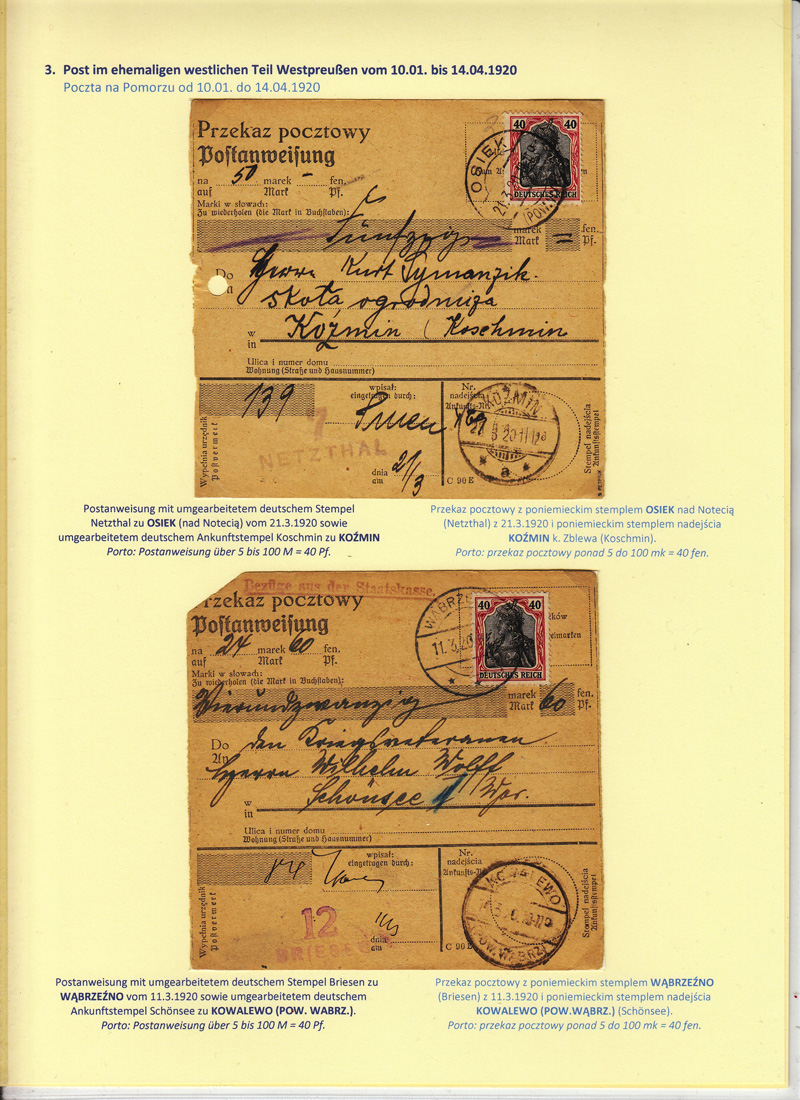 3. Post im ehemaligen westlichen Teil Westpreußen vom 10.01. bis 14.04.1920
Poczta na Pomorzu od 10.01. do 14.04.1920
Przekaz pocztowy
Postanweisung
na 50 marek – fen.
auf Mark Pf.
Marki w słowach:
Zu wiederholen (die Mark in Buchstaben):
Fünfzig marek fen.
Mark Pf.
40 40
DEUTSCHES REICH
OSIEK
(POW.
Do Herrn Kurt Symanzik.
An
skoła ogrodniza
w Koźmin (Koschmin
in
Ulica i numer domu
Wohnung (Straße und Hausnummer)
Wypełnia urzędnik
Postvermerk
139
wpisał:
eingetragen durch:
7
NETZTHAL
dnia 21/3
am
Nr.
nadejścia
Ankunfts-Nr.
KOŹMIN
a
C 90 E
Stempel nadejścia
Ankunftsstempel
Postanweisung mit umgearbeitetem deutschem Stempel
Netzthal zu OSIEK (nad Notecią) vom 21.3.1920 sowie
umgearbeitetem deutschem Ankunftstempel Koschmin zu KOŹMIN
Porto: Postanweisung über 5 bis 100 M = 40 Pf.
Przekaz pocztowy z poniemieckim stemplem OSIEK nad Notecią
(Netzthal) z 21.3.1920 i poniemieckim stemplem nadejścia
KOŹMIN k. Zblewa (Koschmin).
Porto: przekaz pocztowy ponad 5 do 100 mk = 40 fen.
Bezüge aus der Staatskasse.
Przekaz pocztowy
Postanweisung
na 24 marek 60 fen.
auf Mark Pf.
Marki w słowach:
Zu wiederholen (die Mark in Buchstaben):
Vierundzwanzig marek 60 fen.
Mark Pf.
WĄBRZE
11.3.20
40 40
DEUTSCHES REICH
Do den Kriegsveteranen
An
Herrn Wilhelm Wolff
w Schönsee Wpr.
in
Ulica i numer domu
Wohnung (Straße und Hausnummer)
Wypełnia urzędnik
Postvermerk
wpisał:
eingetragen durch:
12
BRIESEN
dnia
am
Nr.
nadejścia
Ankunfts-Nr.
KOWALEWO
(POW. WĄBRZ.)
C 90 E
Stempel nadejścia
Ankunftsstempel
Postanweisung mit umgearbeitetem deutschem Stempel Briesen zu
WĄBRZEŹNO vom 11.3.1920 sowie umgearbeitetem deutschem
Ankunftstempel Schönsee zu KOWALEWO (POW. WABRZ.).
Porto: Postanweisung über 5 bis 100 M = 40 Pf.
Przekaz pocztowy z poniemieckim stemplem WĄBRZEŹNO
(Briesen) z 11.3.1920 i poniemieckim stemplem nadejścia
KOWALEWO (POW.WĄBRZ.) (Schönsee).
Porto: przekaz pocztowy ponad 5 do 100 mk = 40 fen.